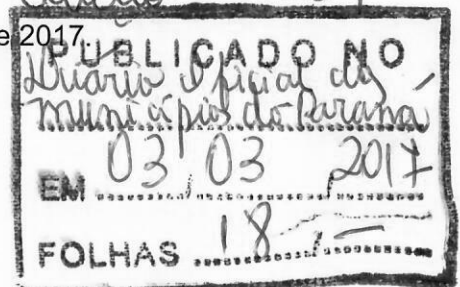 e 2017
PUBLICADO NO
Diário Oficial dos
Municípios do Paraná
EM 03/03/2017
FOLHAS 18